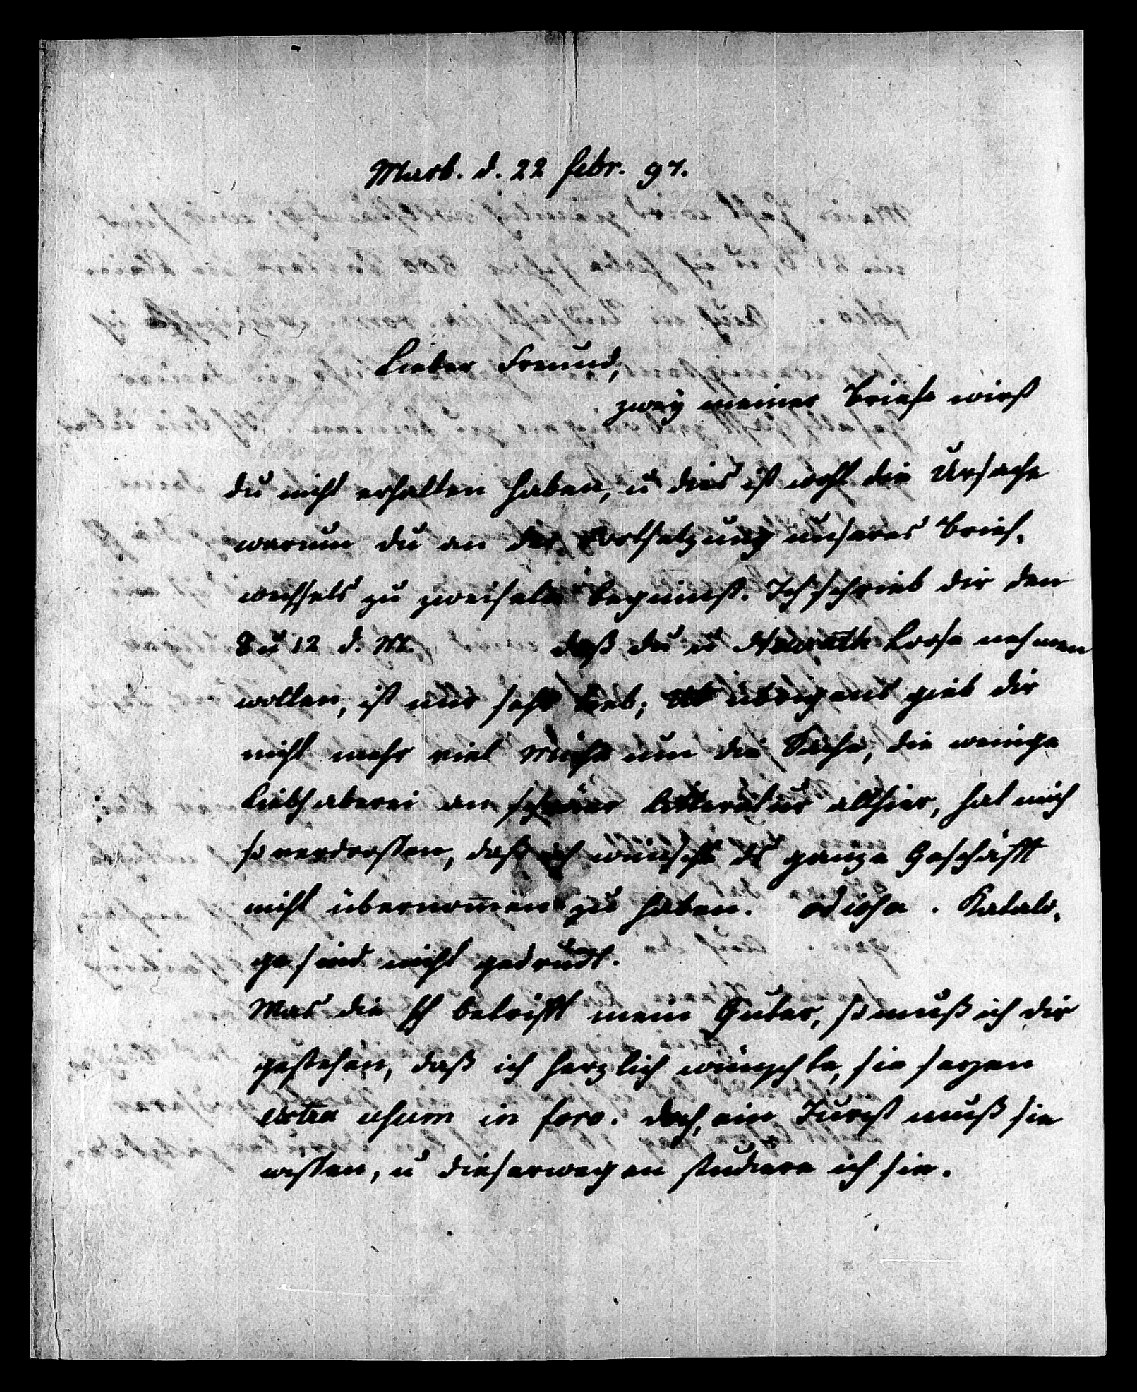 Marb. d. 22 Febr. 97.
Lieber Freund,
zwey meiner Briefe wirst
du nicht erhalten haben, u dies ist wohl die Ursache
warum du an der Fortsetzung unseres Brief-
wechsels zu zweifeln beginnst. Ich schrieb dir den
8 u 12 d. M. daß du u Loose nehmen
wollen, ist mir sehr lieb; übrigens gieb dir
nicht mehr viel Mühe um die Sache, die wenige
Liebhaberei an schöner Litteratur allhier, hat mich
so verdrossen, daß ich wünschte ds ganze Geschäfft
nicht übernomen zu haben. Katalo-
ge sind nicht gedruckt.
Was die betrifft mein Guter, so muß ich dir
gestehen, daß ich herzlich wünschte, sie seyen
extra usum in foro. doch, ein Jurist muß sie
wissen, u dieserwegen studiere ich sie.